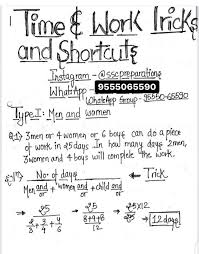 1 Time & Work Tricks
and Shortcuts
Instagram - @sscpreparations
WhatsApp - 9555065590
WhatsApp Group - 95550-65590
Type I: Men and women
Q.1) 3men or 4 women or 6 boys can do a piece
of work in 25 days. In how many days 2men,
3women and 4 boys will complete the work.
No. of days ← Trick
Men and/or + women and/or + child and/or
⇒ 25 / (2/3 + 3/4 + 4/6) ⇒ 25 / ((8+9+8)/12) ⇒ 25×12/25 ⇒ 12 days